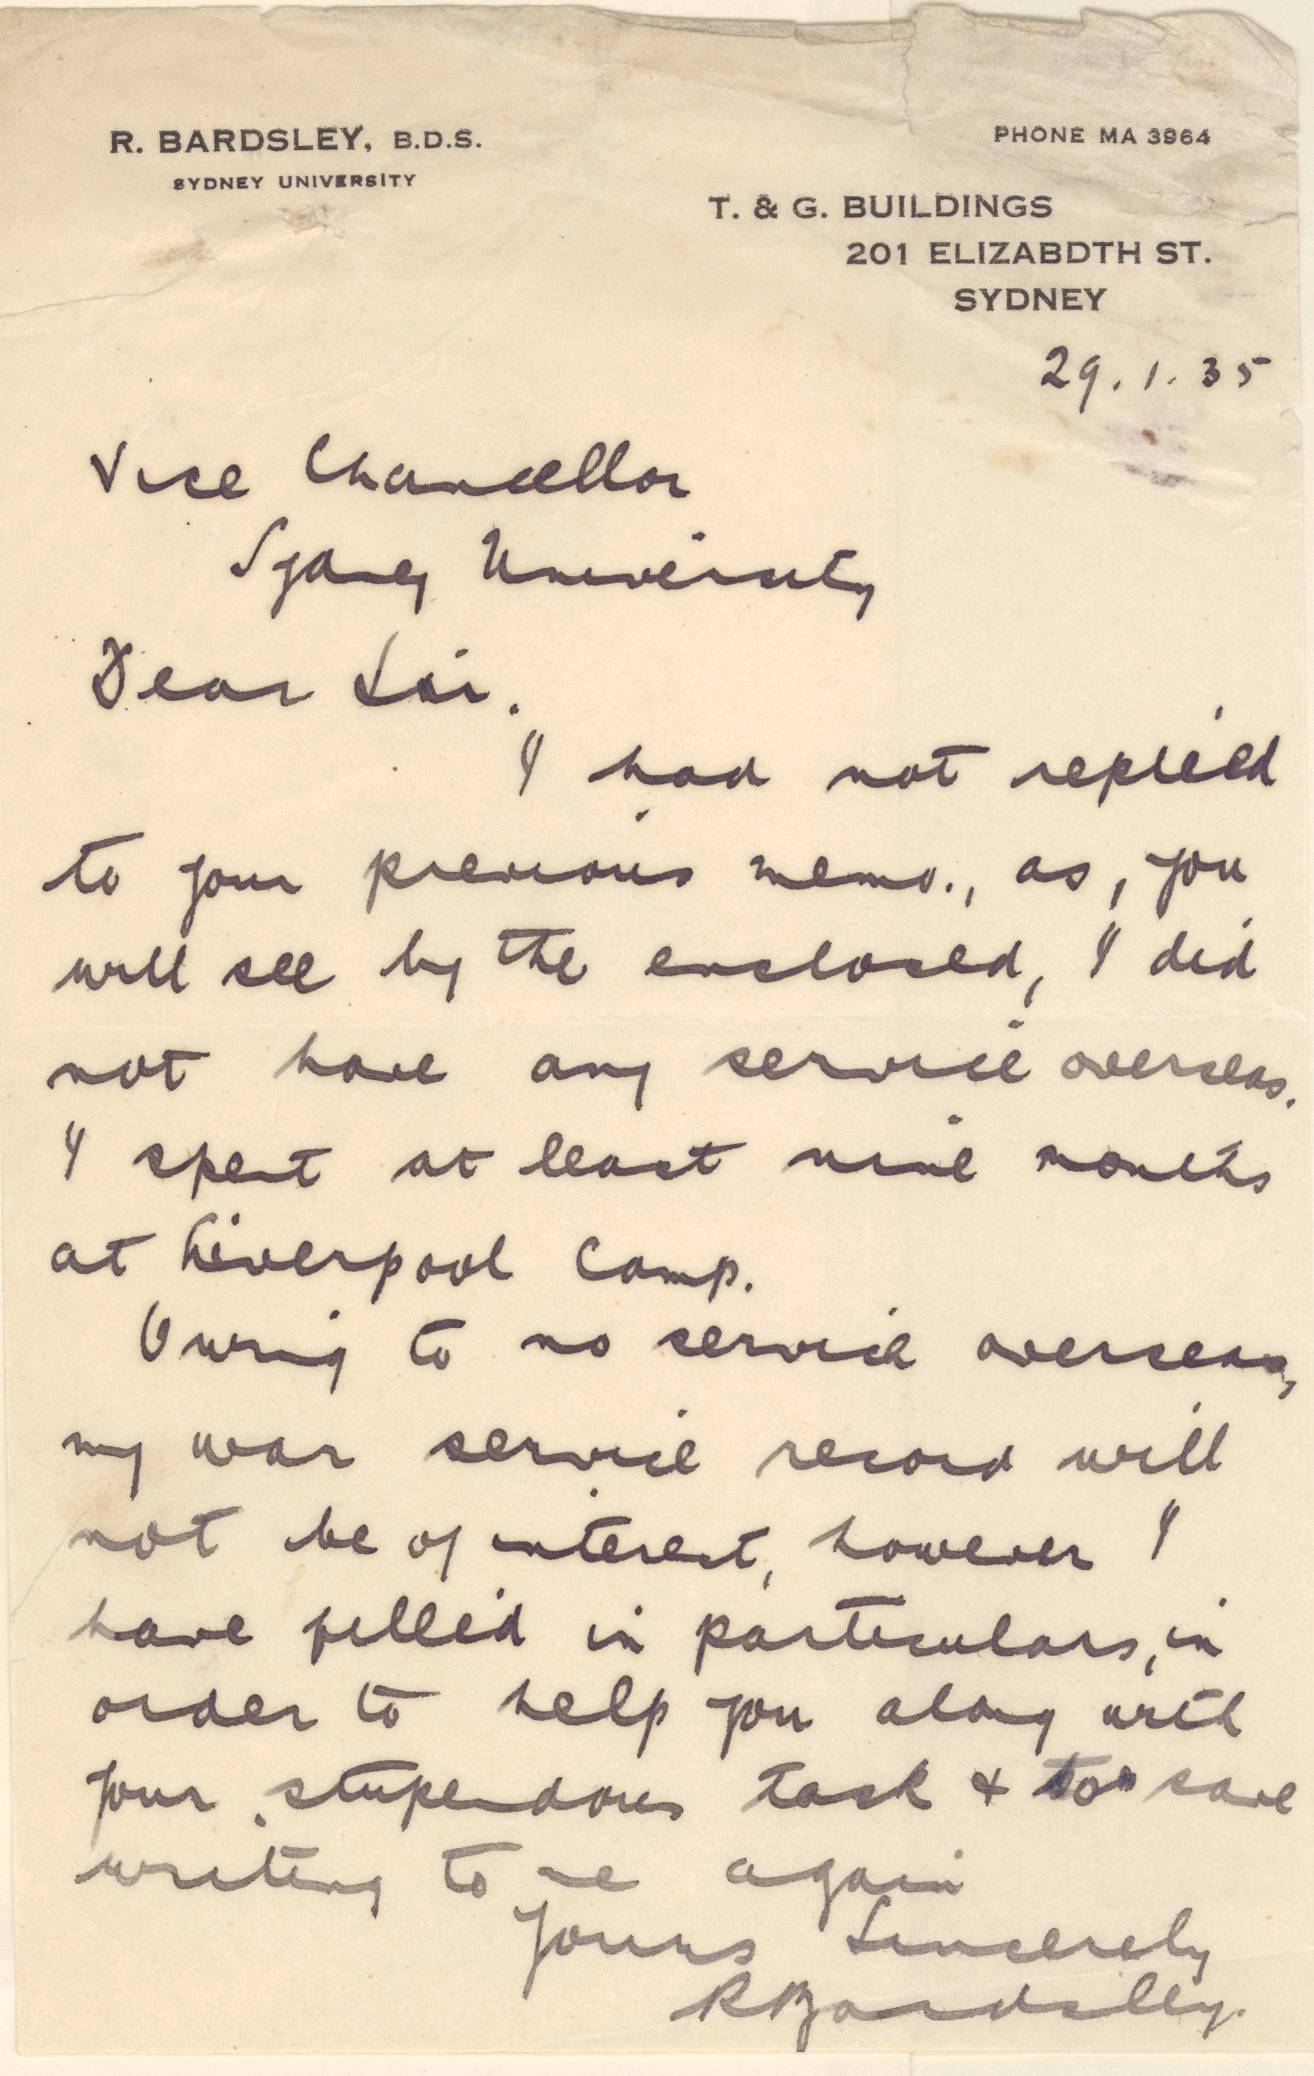 R. BARDSLEY, B.D.S.
SYDNEY UNIVERSITY
PHONE MA 3964
T. & G. BUILDINGS
201 ELIZABDTH ST.
SYDNEY
29.1.35
Vice Chancellor
Sydney University
Dear Sir.
I had not replied
to your previous memo., as, you
will see by the enclosed, I did
not have any service overseas.
I spent at least nine months
at Liverpool Camp.
Owing to no service overseas,
my war service record will
not be of interest, however I
have filled in particulars, in
order to help you along with
your stupendous task & to save
writing to me again
Yours Sincerely
R Bardsley.